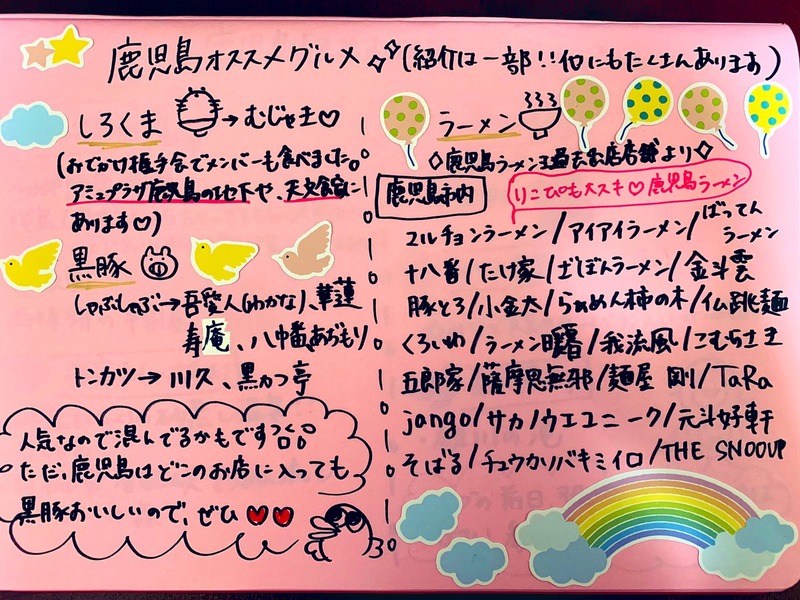 鹿児島オススメグルメ (紹介は一部!!他にもたくさんあります)
しろくま → むじゃき♡
(おでかけ握手会でメンバーも食べました。
アミュプラザ鹿児島の地下や、天文館に
あります♡)
黒豚
しゃぶしゃぶ→吾愛人(わかな)、華蓮
寿庵、八幡あぢもり
トンカツ→川久、黒かつ亭
人気なので混んでるかもです
ただ、鹿児島はどこのお店に入っても
黒豚おいしいので、ぜひ
ラーメン
◇鹿児島ラーメン王過去出店店舗より◇
鹿児島市内
りこぴも大スキ♡鹿児島ラーメン
マルチョンラーメン/アイアイラーメン/ばってんラーメン
十八番/たけ家/ざぼんラーメン/金斗雲
豚とろ/小金太/らぁめん柿の木/仏跳麺
くろいわ/ラーメン暖暮/我流風/こむらさき
五郎家/薩摩思無邪/麺屋 剛/TaRa
jango/サカノウエユニーク/元斗好軒
そばる/チュウカソバキミイロ/THE SNOOUP